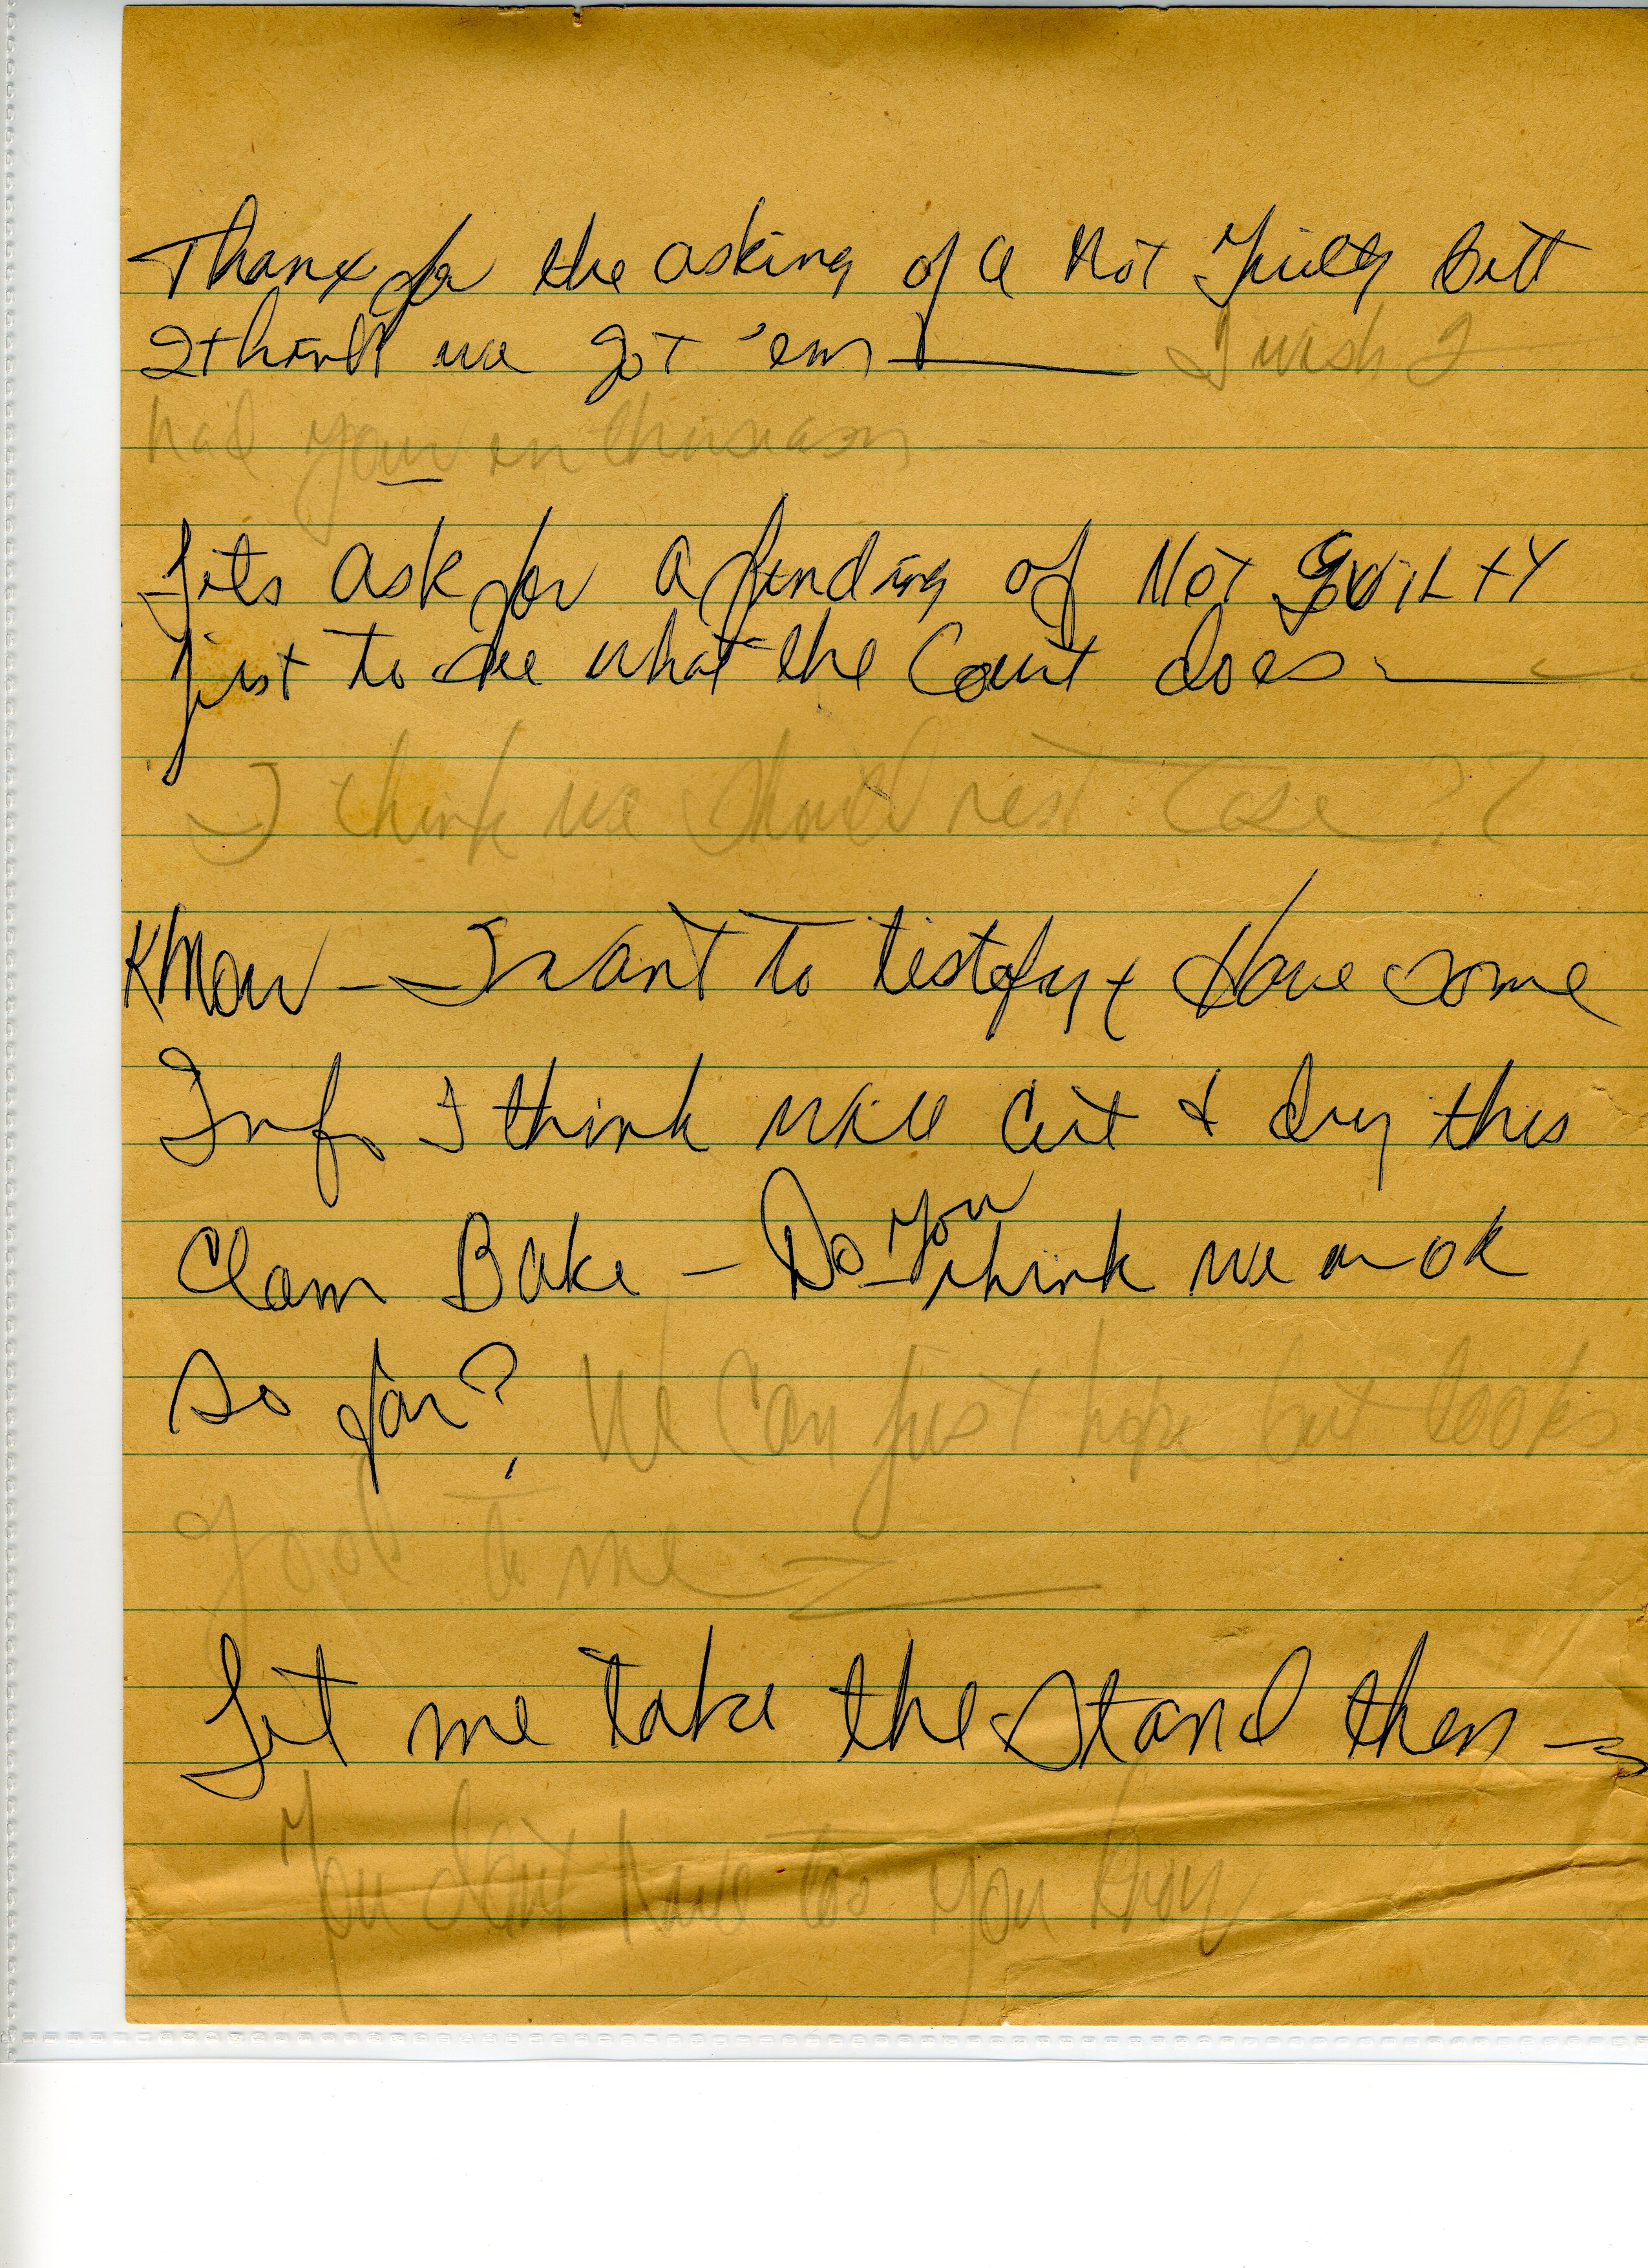 Thanx for the asking of a Not Guilty bitt
I think we got 'em — I wish I
had your enthusiasm —
Lets ask for a finding of Not GUILTY
just to see what the Court does —
I think we should rest case ??
KNow — I want to testify + Have some
Inf. I think will cut & dry this
Clam Bake — Do you think we ar ok
so far? We can just hope but looks
good to me —
Let me take the stand then —
You don't have too you know